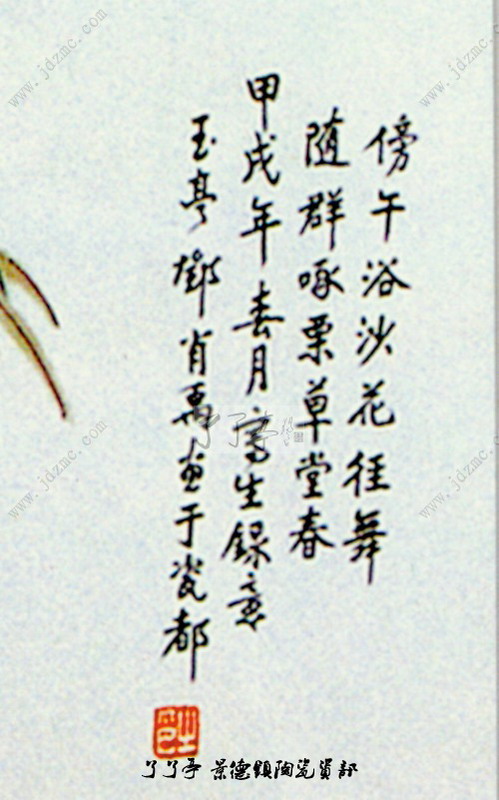 傍午浴沙花径舞
随群啄粟草堂春
甲戌年春月写生録意
玉亭鄧肖禹画于瓷都
了了亭 景德鎮陶瓷資部
www.jdzmc.com
www.jdzmc.com
www.jdzmc.com
www.jdzmc.com